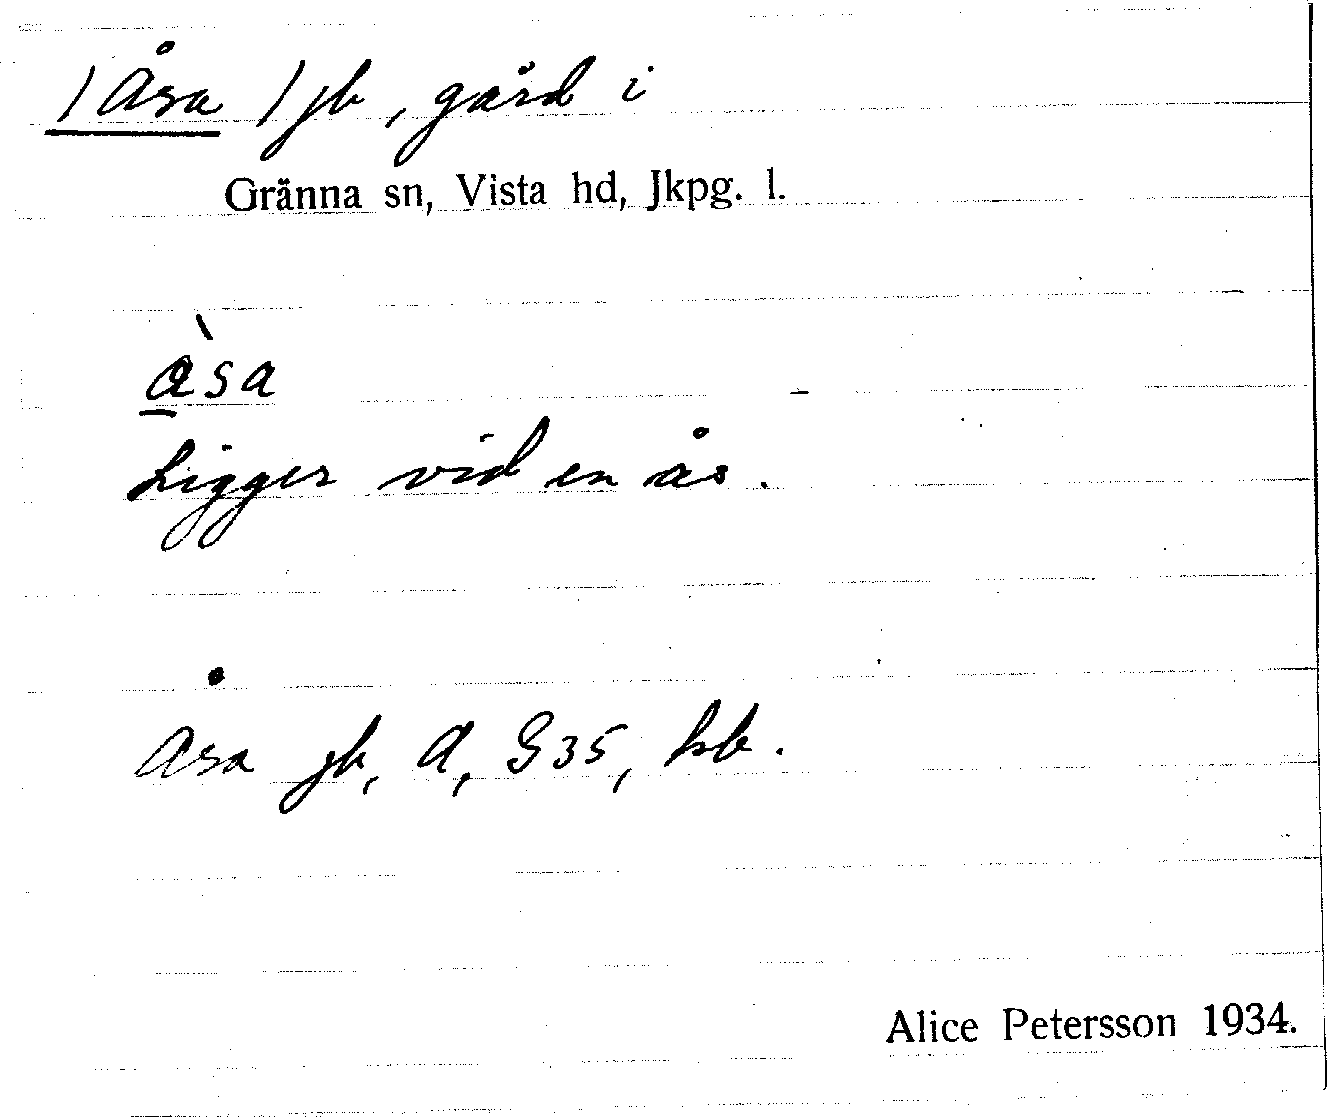 /Åsa / jb, gård i
Gränna sn, Vista hd, Jkpg. l.
å̀sa
Ligger vid en ås.
Åsa jb, A, G35, kb.
Alice Petersson 1934.